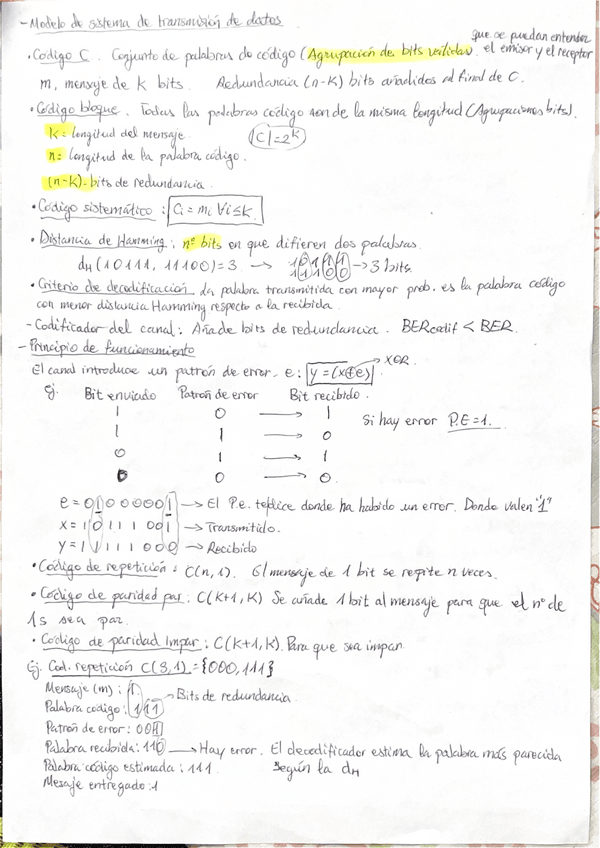 - Modelo de sistema de transmisión de datos
que se puedan entender
• Código C. Conjunto de palabras de código (Agrupación de bits válidas. el emisor y el receptor
m, mensaje de K bits. Redundancia (n-K) bits añadidos al final de C.
• Código bloque. Todas las palabras código son de la misma longitud (Agrupaciones bits).
k = longitud del mensaje. |C|=2^k
n = longitud de la palabra código.
(n-k) - bits de redundancia.
• Código sistemático: Ci = mi ∀i≤k.
• Distancia de Hamming: nº bits en que difieren dos palabras.
dH (10111, 11100) = 3 → 10111 → 3 bits.
11100
• Criterio de decodificación. La palabra transmitida con mayor prob. es la palabra código
con menor distancia Hamming respecto a la recibida.
- Codificador del canal: Añade bits de redundancia. BERcodif < BER.
- Principio de funcionamiento
El canal introduce un patrón de error. e: y = (x⊕e) → XOR
Ej. Bit enviado Patrón de error Bit recibido.
1 0 → 1 Si hay error P.E=1.
1 1 → 0
0 1 → 1
0 0 → 0.
e = 01000001 → El P.e. te dice donde ha habido un error. Donde valen "1"
x = 10111001 → Transmitido.
y = 11111000 → Recibido
• Código de repetición: C(n,1). El mensaje de 1 bit se repite n veces.
• Código de paridad par: C(K+1,K) Se añade 1 bit al mensaje para que el nº de
1s sea par.
• Código de paridad Impar: C(K+1,K). Para que sea impar.
Ej. Cod. repetición C(3,1) = {000,111}
Mensaje (m): 1
Palabra codigo: 111 Bits de redundancia.
Patrón de error: 001
Palabra recibida: 110 → Hay error. El decodificador estima la palabra más parecida
Palabra código estimada: 111. según la dH
Mesaje entregado: 1